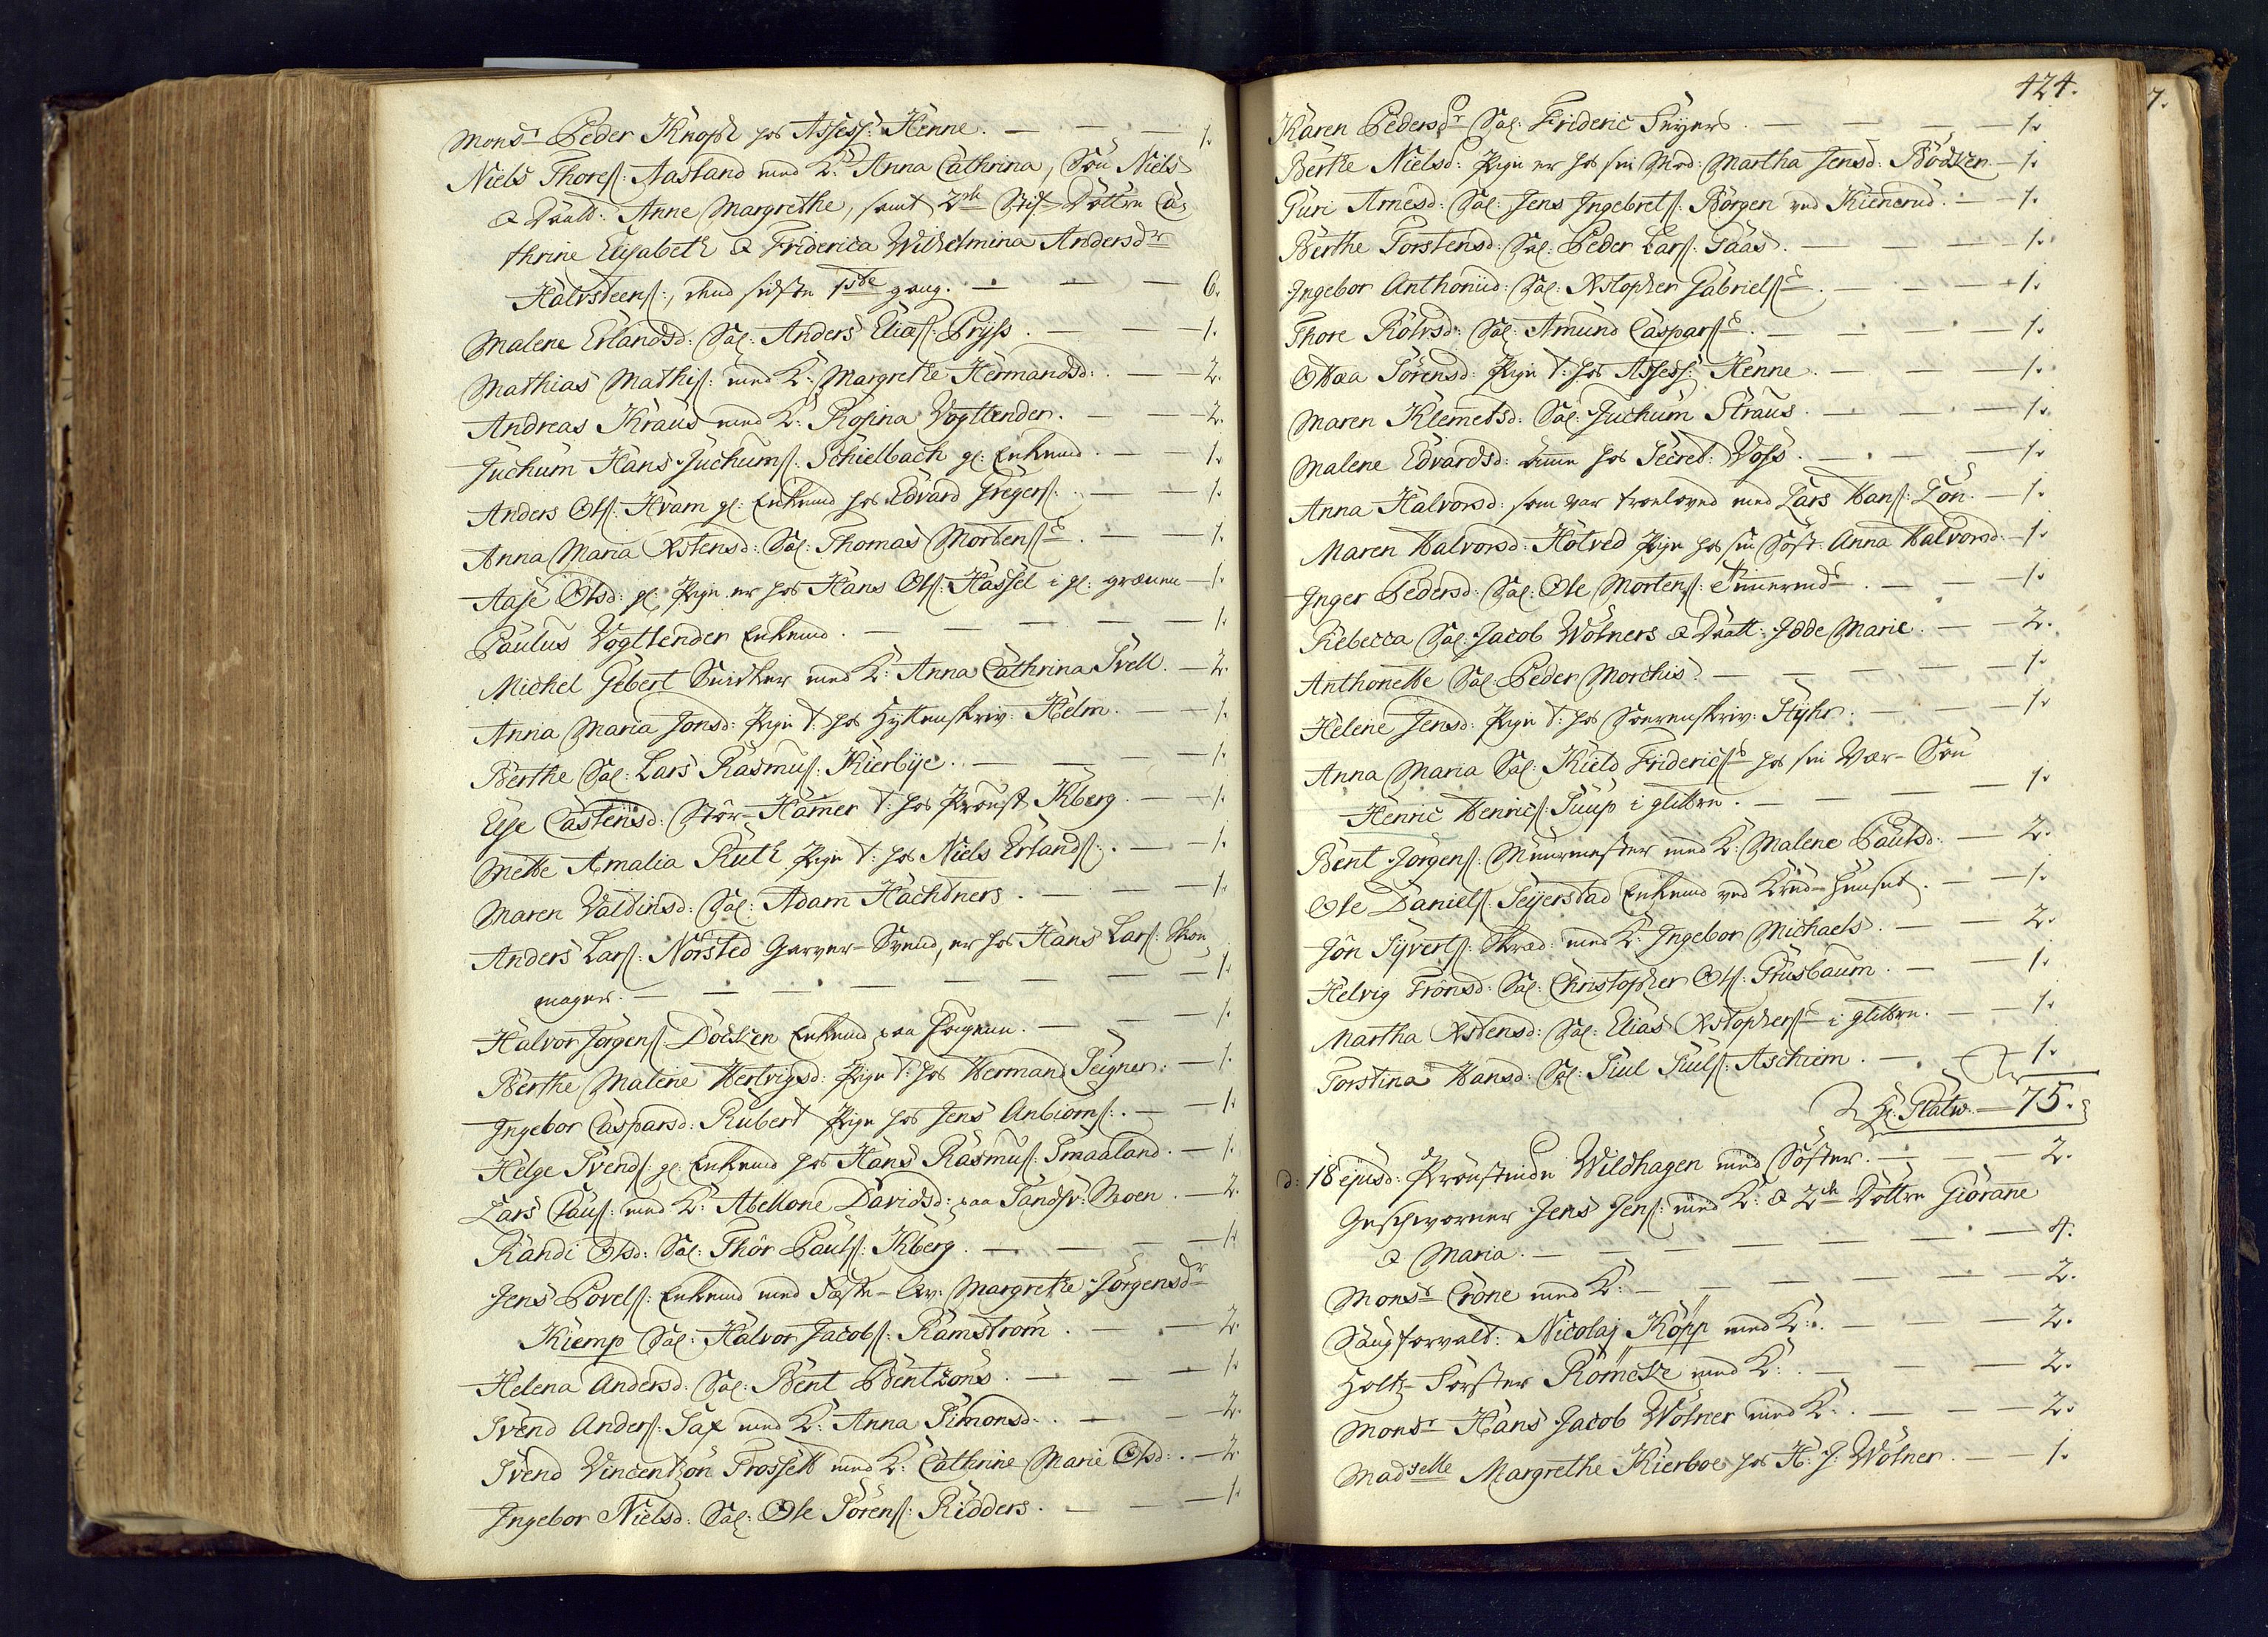 Mons.r Peder Knoph hos Assess: Henne. — — — 1.
Niels Thoress: Aasland med K: Anna Cathrina, Søn Niels
& Daatt: Anne Margrethe, samt 2de Stif-Døttre Ca,
thrine Elisabeth & Friderica Wilhelmina Andersdr
Halvsteens:, dend sidste 1ste gang. — — — 6.
Malene Erlandsd: Sal: Anders Elias: Pryss. — — 1.
Mathias Mathis: med K: Margrethe Hermandsd: — — 2.
Andreas Kraus med K: Rosina Vogtlender. — — 2.
Juchum Hans Juchums: Schielbach gl: Enkemd. — — 1.
Anders Ols: Hvam gl: Enkemd hos Edvard Gregers: — — 1.
Anna Maria Xstensd: Sal: Thomas Mortens: — — 1.
Aase Olsd: gl: Pige er hos Hans Ols: Hassel i gl: grønnen — 1.
Paulus Vogtlender Enkemd. — — — — 1.
Michel Gebert Snidker med K: Anna Cathrina Svell. — 2.
Anna Maria Jonsd: Pige t: hos Hyttenskriv: Helm. — — 1.
Berthe Sal: Lars Rasmus: Kierbye. — — — 1.
Else Castensd: Stor-Hamer t: hos Proust Kberg. — — 1.
Mette Amalia Ruth Pige t: hos Niels Erlands: — — 1.
Maren Valdinsd: Sal: Adam Hachdners. — — — 1.
Anders Lars: Norsted Garver-Svend, er hos Hans Lars: Skoe
mager. — — — — — — 1.
Halvor Jørgens: Døesken Enkemd paa Haugenn. — — 1.
Berthe Malene Hertvigsd: Pige t: hos Herman Seigner: — 1.
Ingebor Caspersd: Rubert Pige hos Jens Anbiørns: — — 1.
Helge Svends: gl: Enkemd hos Hans Rasmus: Smaaland. — 1.
Lars Claus: med K: Abellone Davidsd: paa Sandsv: Moen. — 2.
Randi Olsd: Sal: Thor Pauls: Kberg. — — — 1.
Jens Povels: Enkemd med Fæste-Qv: Margrethe Jørgensdr
Kiemp Sal: Halvor Jacobs: Ramstrøm. — — 2.
Helena Andersd: Sal: Bent Bentzons. — — — 1.
Svend Anders: Sax med K: Anna Simonsd: — — 2.
Svend Vincentzon Frossett med K: Cathrine Marie Olsd: — 2.
Ingebor Nielsd: Sal: Ole Sørens: Ridders. — — 1.
424.
Karen Pedersdr Sal: Frideric Seyers. — — — 1.
Berthe Nielsd: Pige er hos sin Mod: Martha Jensd: Bødker. — 1.
Guri Arnesd: Sal: Jens Ingebrets: Børgen ved Kienerud. — 1.
Berthe Torstensd: Sal: Peder Lars: Gaas. — — — 1.
Ingebor Anthonisd: Sal: Xstopher Gabriels: — — — 1.
Thore Rolvsd: Sal: Amund Caspars: — — — 1.
Ottea Sørensd: Pige t: hos Assess: Henne. — — — 1.
Maren Klemetsd: Sal: Juchum Straus. — — — 1.
Malene Edvardsd: Amme hos Secret: Voss. — — — 1.
Anna Halvorsd: som var troeloved med Lars Hans: Løn. — 1.
Maren Halvorsd: Hotved Pige hos sin Søst: Anna Halvorsd: — 1.
Inger Pedersd: Sal: Ole Mortens: — — 1.
Rebecca Sal: Jacob Wølners & Daatt: Idde Marie. — — 2.
Anthonette Sal: Peder Morchis. — — — 1.
Helene Jensd: Pige t: hos Sorenskriv: Styhr. — — — 1.
Anna Maria Sal: Kield Frideric: hos sin Vær-Søn
Henric Henrics: Suup i glitre. — — — 1.
Bent Jørgens: Muurmester med K: Malene Paulsd: — 2.
Ole Daniels: Seyerstad Enkemd ved Krud-Huuset. — — 1.
Jon Syverts: Skred: med K: Ingebor Michaels. — — 2.
Helvig Fronsd: Sal: Christopher Ols: Grusbaum. — — 1.
Martha Xstensd: Sal: Elias Xstophers: i glitre. — — 1.
Torstina Hansd: Sal: Siul Siuls: Aschiem. — — 1.
75.
d: 18 ejusd: Proustinde Wildhagen med Søster. — — — 2.
Geschworner Jens Jens: med K: & 2de Døttre Giørane
& Maria. — — — — — 4.
Mons.r Crone med K: — — — — 2.
Saugforvalt: Nicolaj Kopp med K: — — — 2.
Holtz-Førster Romecke med K: — — 2.
Mons.r Hans Jacob Wølner med K: — — — 2.
Madselle Margrethe Kierboe hos H: J: Wølner. — — 1.